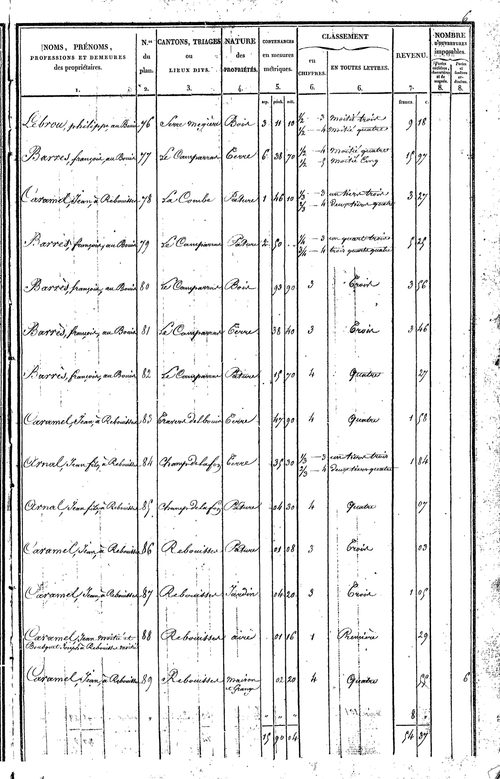 6
NOMS, PRÉNOMS, PROFESSIONS ET DEMEURES des propriétaires. | N.os du plan. | CANTONS, TRIAGES ou LIEUX DITS. | NATURE des PROPRIÉTÉS. | CONTENANCES en mesures métriques. | CLASSEMENT en CHIFFRES. | EN TOUTES LETTRES. | REVENU. | NOMBRE D'OUVERTURES imposables.
1. | 2. | 3. | 4. | 5. | 6. | 6. | 7. | 8. | 8.
arp. | francs. | c.
Lebrou, philippe, au Bouis | 76 | Serre megière | Bois | 3 11 10 | 1/2 — 3 moitié trois | 9 18
1/2 — 4 moitié quatre
Barrès, françois, au Bouis | 77 | Le Camparras | Terre | 6 38 70 | 1/2 — 4 moitié quatre | 15 97
1/2 — 5 moitié Cinq
Caramel, Jean, à Rebouisse | 78 | La Combe | Pâture | 1 46 10 | 1/3 — 3 un tiers trois | 3 27
2/3 — 4 deux tiers quatre
Barrès, françois, au Bouis | 79 | Le Camparras | Pâture | 2 50 .. | 1/4 — 3 un quart trois | 5 25
3/4 — 4 trois quarts quatre
Barrès, françois, au Bouis | 80 | Le Camparras | Bois | 93 90 | 3 | Trois | 3 56
Barrès, françois, au Bouis | 81 | Le Camparras | Terre | 38 40 | 3 | Trois | 3 46
Barrès, françois, au Bouis | 82 | Le Camparras | Pâture | 15 70 | 4 | Quatre | 27
Caramel, Jean, à Rebouisse | 83 | Travers del bouis | Terre | 47 90 | 4 | Quatre | 1 58
Arnal, Jean fils, à Rebouisse | 84 | Champ de la foz | Terre | 35 30 | 1/3 — 3 un tiers trois | 1 84
2/3 — 4 deux tiers quatre
Arnal, Jean fils, à Rebouisse | 85 | Champ de la foz | Pâture | 04 30 | 4 | Quatre | 07
Caramel, Jean, à Rebouisse | 86 | Rebouisse | Pâture | 01 08 | 3 | Trois | 03
Caramel, Jean, à Rebouisse | 87 | Rebouisse | Jardin | 04 20 | 3 | Trois | 1 05
Caramel, Jean moitié et | 88 | Rebouisse | aire | 01 16 | 1 | Première | 29
Bousquet Joseph à Rebouisse moitié
Caramel, Jean, à Rebouisse | 89 | Rebouisse | maison et Grange | 02 20 | 4 | Quatre | 6
" " " | 8 "
15 90 04 | 54 37